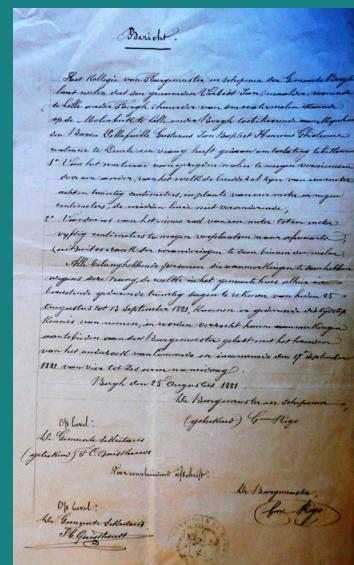 Bericht.
Het Kollegie van Burgemeester en schepenen der Gemeente Bergh
laat weten dat den genaamden Verbist Jan, maalder, wonende
te Lille onder Bergh, van den watermolen staande
op de Molenbeek te Lille onder Bergh toebehoorende aan Mijnheer
den Baron Gustavus Jan Baptist
te eene vraag heeft gedaan om toelating te bekomen
1° Van het waterrad van zijnen molen te mogen vernieuwen
door een ander, van het welk de breedte zal zijn van een meter
achten twintig centimeters, in plaats van een meter en negen
centimeters, de middenlinie niet veranderende,
2° van het nieuw rad van een meter tot een meter
vyftig centimeters te mogen verplaatsen naar opwaarts,
der veranderingen te doen binnen den molen
Alle belanghebbende personen die aanmerkingen te doen hebben
wegens deze vraag, de welke in het gemeentehuis alhier
gedurende twintig dagen te rekenen van heden 25
Augustus tot 13 september 1881, kunnen
kennis van nemen, en worden verzocht hunne aanmerkingen
aan den Burgemeester gelast met het houden
van het onderzoek van commodo en incommodo den 17 september
1881 van vier tot zes uren na middag.
Bergh den 25 Augustus 1881
De Burgemeester en schepenen
(geteekend) Rigo
Op bevel:
De Gemeente Sekretaris
(geteekend)
Voor eensluidend afschrift:
De Burgemeester,
Rigo
Op bevel:
De Gemeente Sekretaris